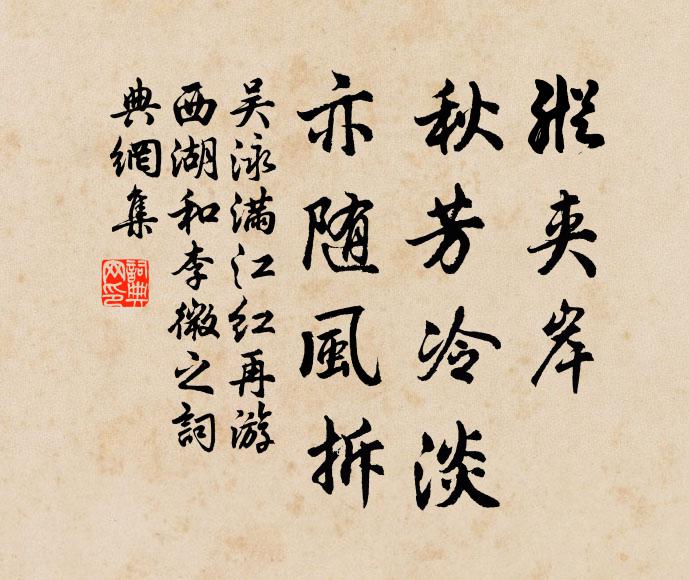 纵夹岸
秋芳冷淡
亦随風拆
吴泳满江红再游
西湖和李微之詞
典網集
詞典網印